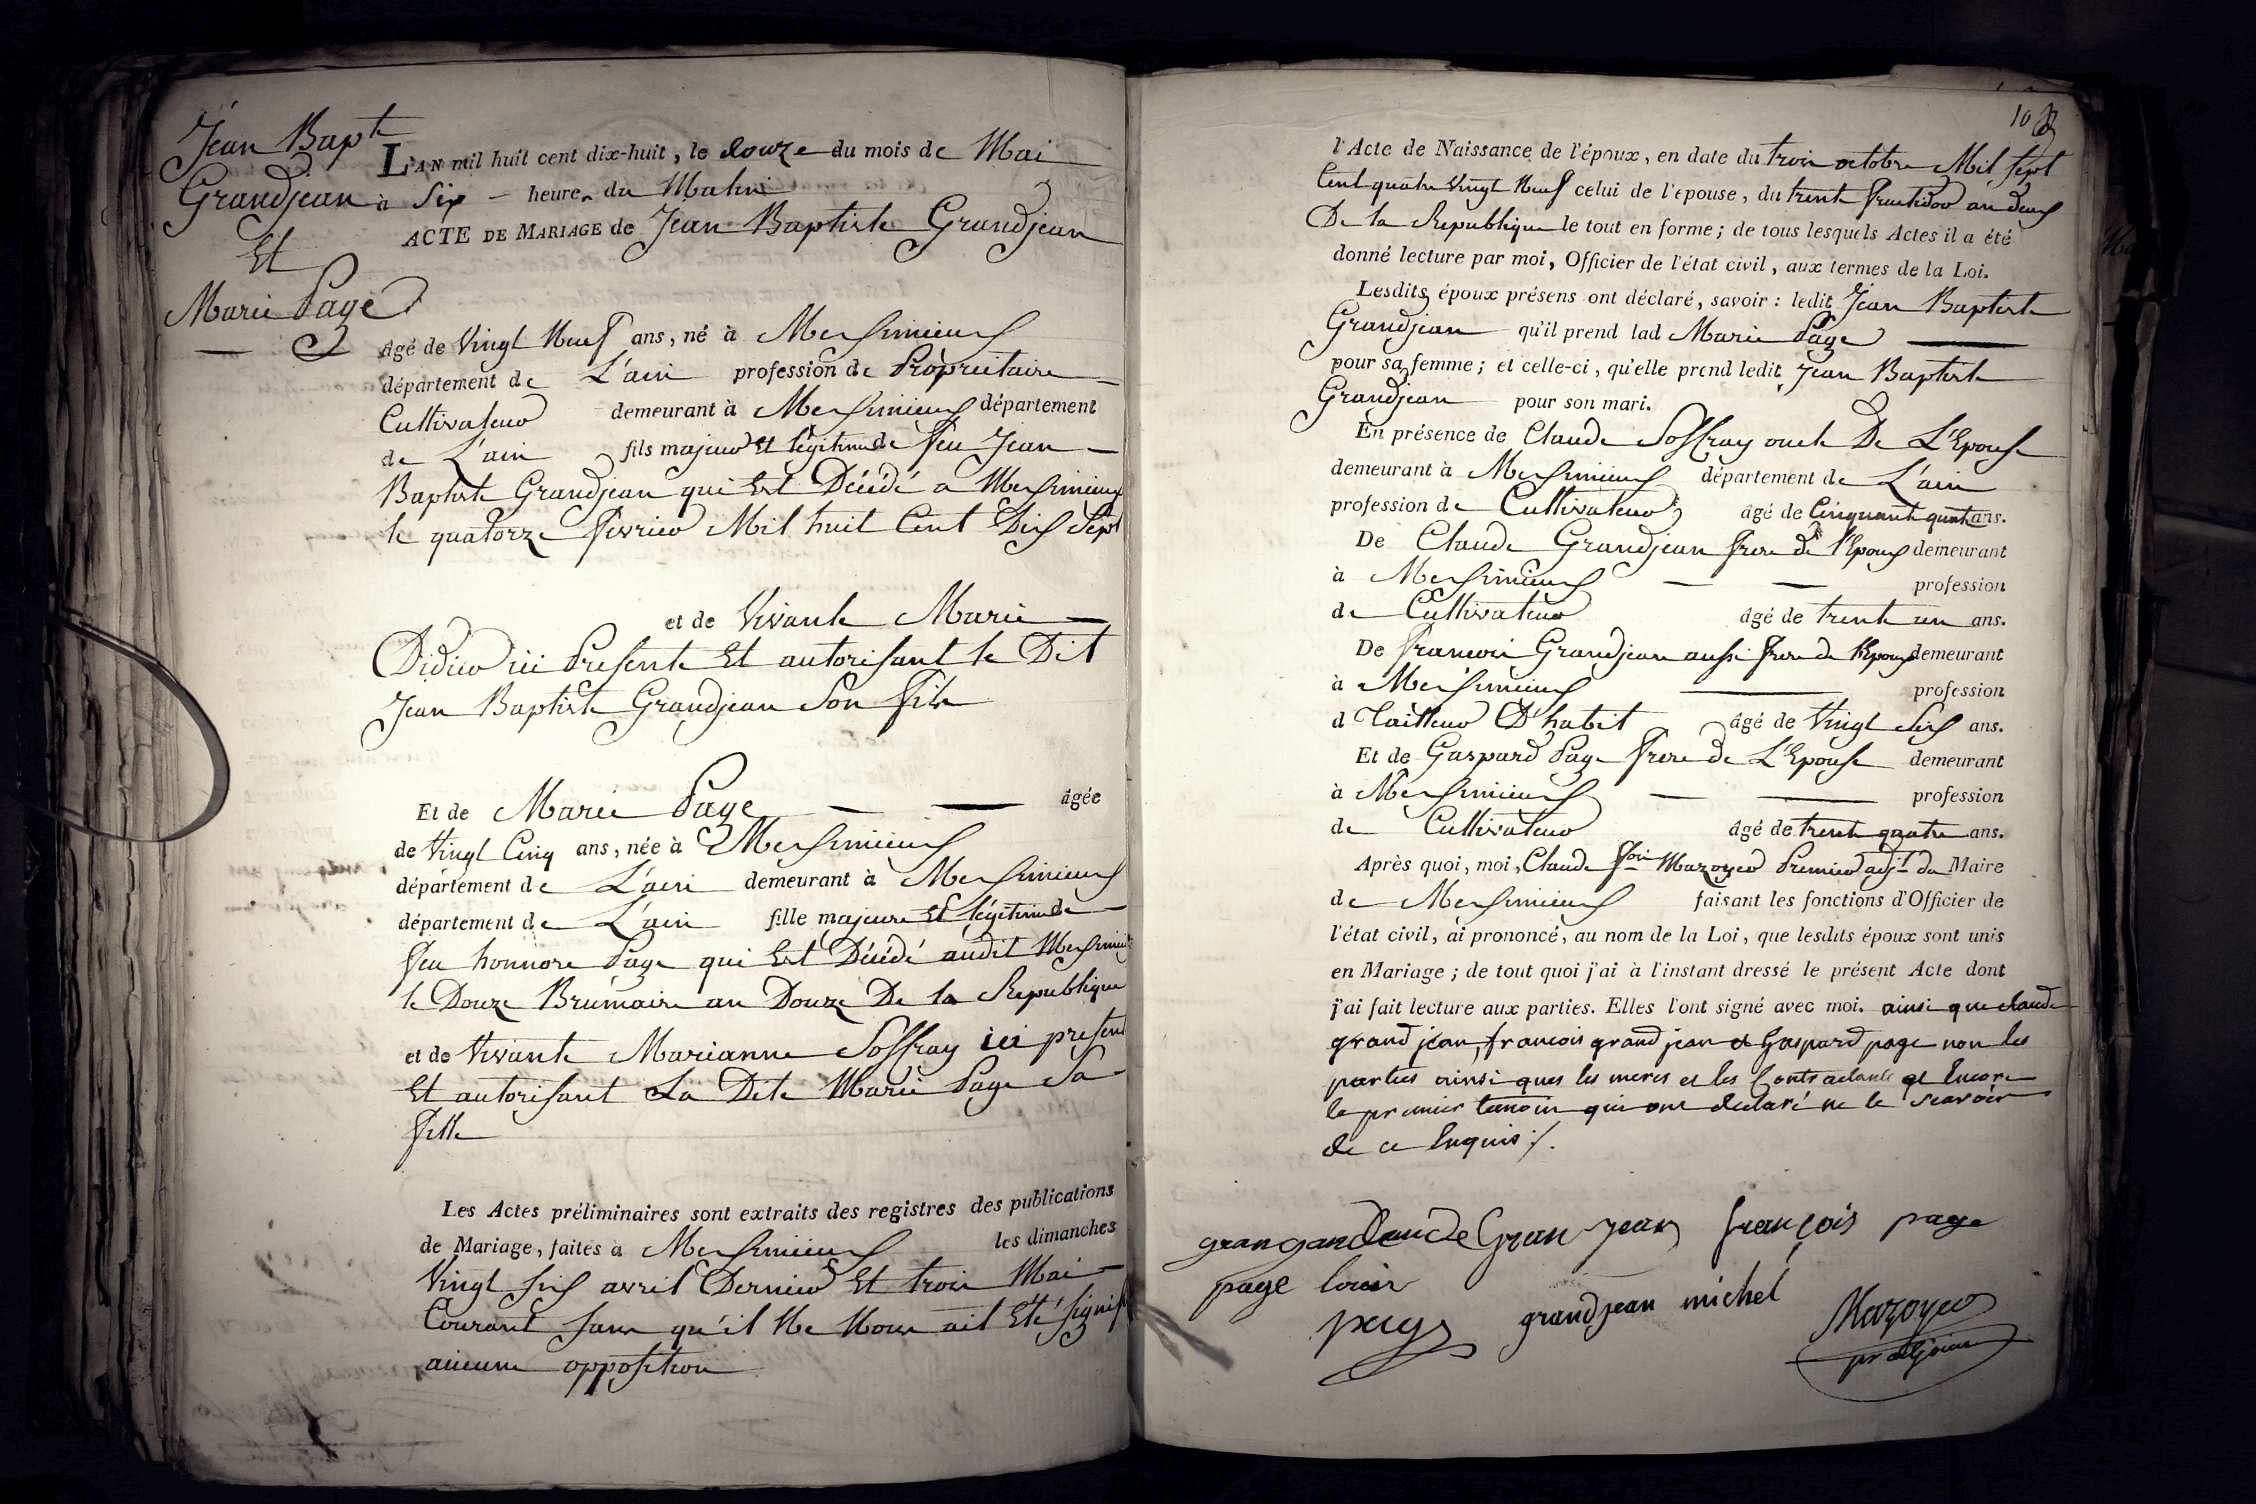 Jean Bapte
Grandjean
Et
Marie Page
L'AN mil huit cent dix-huit, le douze du mois de Mai
à Six heures du Matin
ACTE DE MARIAGE de Jean Baptiste Grandjean
âgé de Vingt Neuf ans, né à Messimieux
département de L'ain profession de Proprietaire
Cultivateur demeurant à Messimieux département
de L'ain fils majeur Et légitime de feu Jean
Baptiste Grandjean qui Est Décédé a Messimieux
le quatorze fevrier Mil huit Cent Dix Sept
et de Vivante Marie
Didier ici Presente Et autorisant le Dit
Jean Baptiste Grandjean Son fils
Et de Marie Page âgée
de Vingt Cinq ans, née à Messimieux
département de L'ain demeurant à Messimieux
département de L'ain fille majeure Et légitime de
feu honnore Page qui Est Décédé audit Messimieux
le Douze Brumaire an Douze De la Republique
et de Vivante Marianne Soffray ici present
Et autorisant La Dite Marie Page Sa
fille
Les Actes préliminaires sont extraits des registres des publications
de Mariage, faites à Messimieux les dimanches
Vingt six avril Dernier Et trois Mai
Courant sans qu'il Ne Nous ait Eté signifié
aucune opposition
103
l'Acte de Naissance de l'époux, en date du trois octobre Mil sept
Cent quatre Vingt Neuf celui de l'epouse, du trente fructidor an deux
De la Republique le tout en forme; de tous lesquels Actes il a été
donné lecture par moi, Officier de l'état civil, aux termes de la Loi.
Lesdits époux présens ont déclaré, savoir: ledit Jean Baptiste
Grandjean qu'il prend lad Marie Page
pour sa femme; et celle-ci, qu'elle prend ledit Jean Baptiste
Grandjean pour son mari.
En présence de Claude Soffray oncle De L'Epouse
demeurant à Messimieux département de L'ain
profession de Cultivateur âgé de Cinquante quatre ans.
De Claude Grandjean frere de l'Epoux demeurant
à Messimieux profession
de Cultivateur âgé de trente un ans.
De francois Grandjean aussi frere de l'Epoux demeurant
à Messimieux profession
d Tailleur D'habit âgé de Vingt Six ans.
Et de Gaspard Page frere de L'Epouse demeurant
à Messimieux profession
de Cultivateur âgé de trente quatre ans.
Après quoi, moi, Claude fois Mazoyer Premier adjt du Maire
de Messimieux faisant les fonctions d'Officier de
l'état civil, ai prononcé, au nom de la Loi, que lesdits époux sont unis
en Mariage; de tout quoi j'ai à l'instant dressé le présent Acte dont
j'ai fait lecture aux parties. Elles l'ont signé avec moi. ainsi que claude
grand jean, francois grand jean et Gaspard page non les
parties ainsi ques les meres et les Contractants et Encore
le premier temoin qui ont declaré ne le scavoir
de ce Enquis ./.
grangan claude Gran jean françois page
page louis
page grandjean michel Mazoyer
pr adjoint